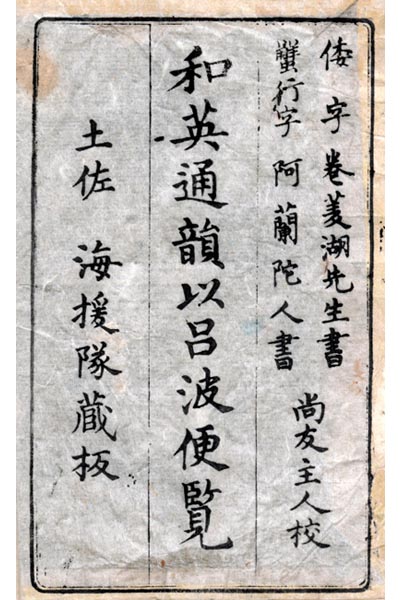 倭字 卷菱湖先生書
蟹行字 阿蘭陀人書
尚友主人校
和英通韻以呂波便覧
土佐 海援隊蔵板